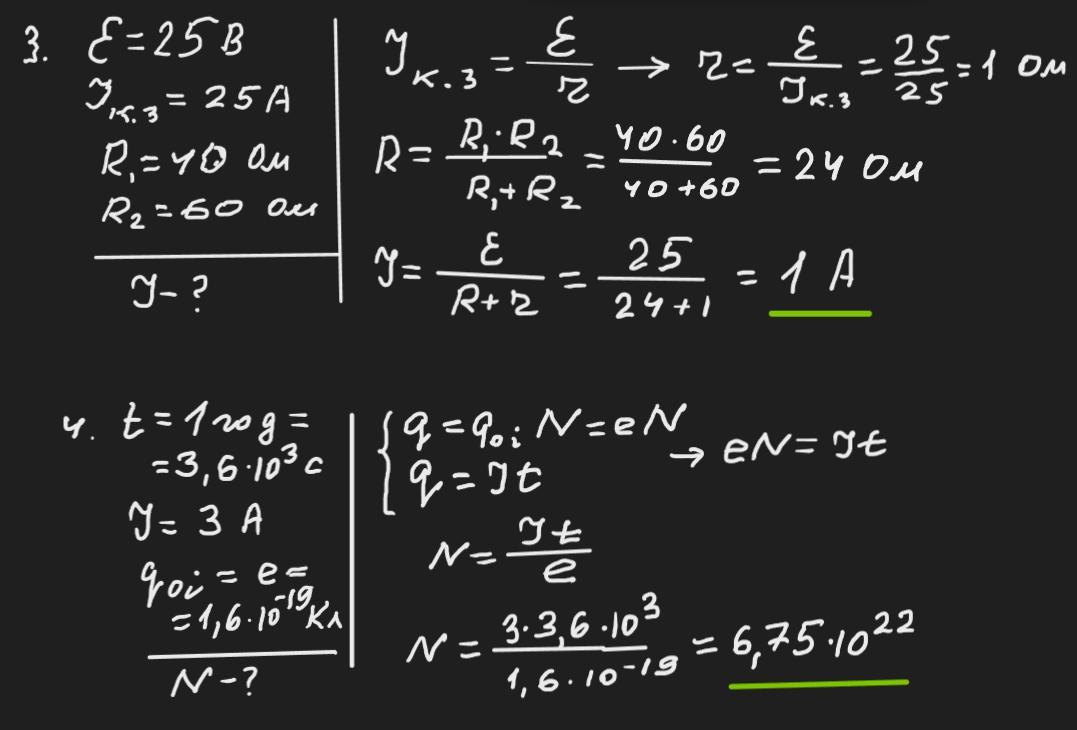 3. ℰ = 25 В
I к.з = 25 А
R₁ = 40 Ом
R₂ = 60 Ом
I - ?
I к.з = ℰ/r → r = ℰ/I к.з = 25/25 = 1 Ом
R = R₁·R₂/(R₁ + R₂) = 40·60/(40 + 60) = 24 Ом
I = ℰ/(R + r) = 25/(24 + 1) = 1 А
4. t = 1 год =
= 3,6·10³ с
I = 3 А
q₀ᵢ = e =
= 1,6·10⁻¹⁹ Кл
N - ?
{ q = q₀ᵢ N = eN
q = It → eN = It
N = It/e
N = 3·3,6·10³/1,6·10⁻¹⁹ = 6,75·10²²